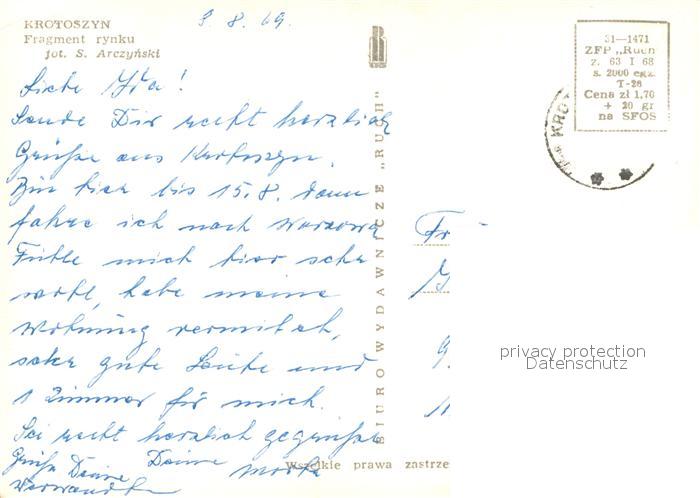 KROTOSZYN
Fragment rynku
fot. S. Arczyński
9. 8. 69.
31—1471
ZFP „Ruch
z. 63 I 68
s. 2000 egz.
T-28
Cena zł 1,70
+ 20 gr
na SFOS
KROT
Liebe Ida!
Sende Dir recht herzlich
Grüße aus Krotoszyn.
Bin hier bis 15.8. dann
fahre ich nach Warszawa
Fühle mich hier sehr
wohl, habe meine
Wohnung vermitet,
sehr gute Leute und
1 Zimmer für mich.
Sei recht herzlich gegrüßt
Deine
Grüße Deine
Verwandte
BIURO WYDAWNICZE „RUCH"
Wszelkie prawa zastrze
Fr
privacy protection
Datenschutz